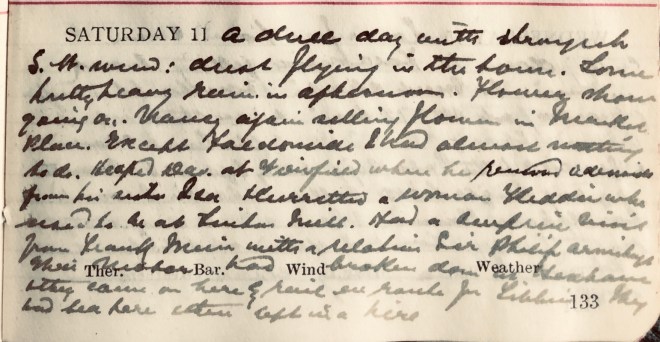 SATURDAY 11 A dull day with strongish
S.W. wind: dust flying in the town. Some
pretty heavy rain in afternoon. Flower show
going on. Nancy again selling flowers in Market
Place. Except I had almost nothing
to do. Helped Dav. at where he removed adenoids
from his sister Isa a woman who
used to be at Mill. Had a surprise visit
from Muir with a relation Sir Philip
Their had broken down at
Ther. Bar. Wind Weather
they came on here by rail en route for They
had tea here then left in a hire
133